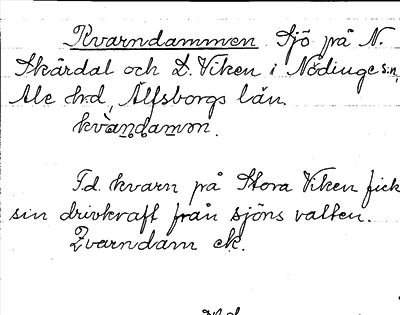 Kvarndammen Sjö på N.
Skårdal och D. Viken i Nödinge sn,
Ale hd, Älfsborgs län.
kvàn̥damm.
F.d. kvarn på Stora Viken fick
sin drivkraft från sjöns vatten.
Kvarndam ek.